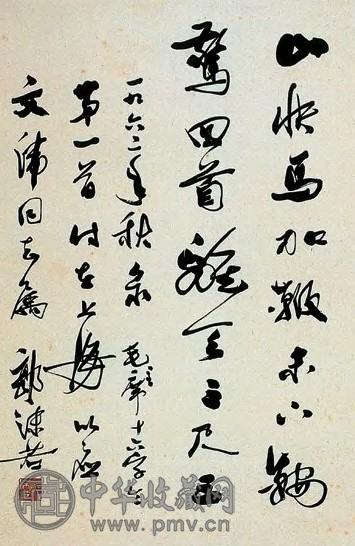 山快馬加鞭未下鞍
驚回首離天三尺三
一九六二年秋录毛主席十六字令
第一首时在上海以应
文同志属 郭沫若
中华收藏网
www.pmv.cn